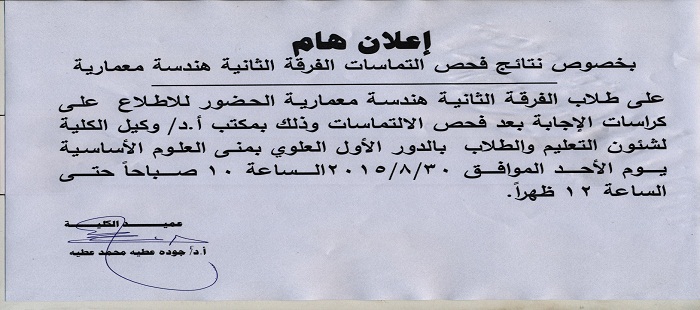 إعلان هام
بخصوص نتائج فحص التماسات الفرقة الثانية هندسة معمارية
على طلاب الفرقة الثانية هندسة معمارية الحضور للاطلاع على
كراسات الإجابة بعد فحص الالتماسات وذلك بمكتب أ.د/ وكيل الكلية
لشئون التعليم والطلاب بالدور الأول العلوي بمنى العلوم الأساسية
يوم الأحد الموافق ٢٠١٥/٨/٣٠ الساعة ١٠ صباحاً حتى
الساعة ١٢ ظهراً.
عميد الكلية
أ.د/ جوده عطيه محمد عطيه